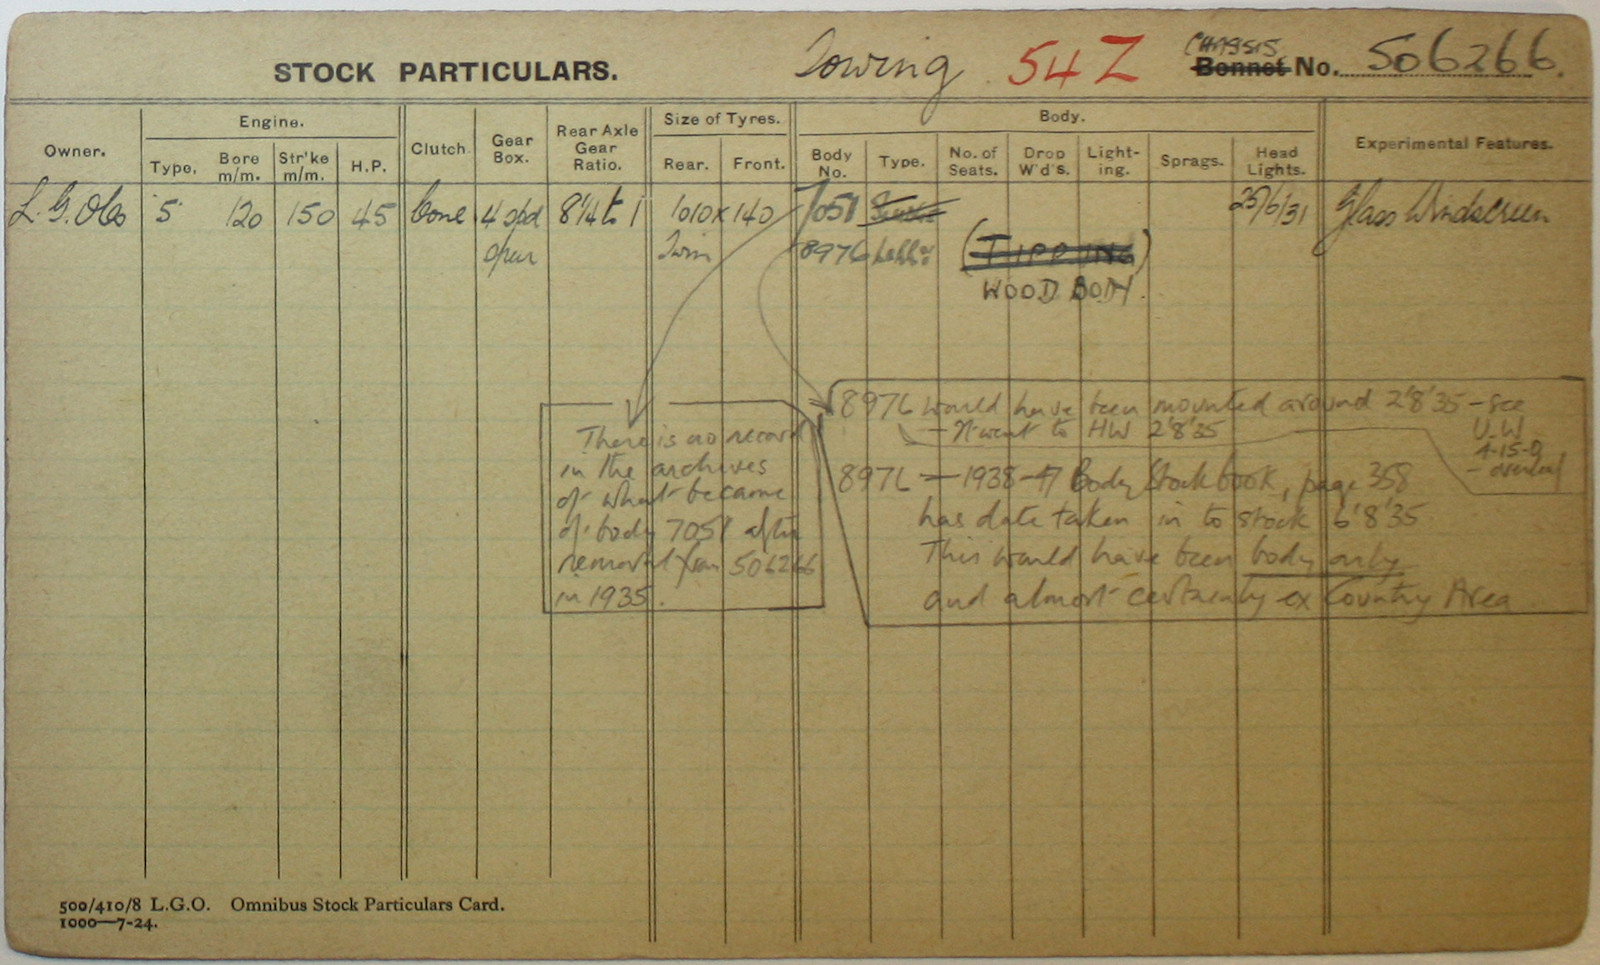 STOCK PARTICULARS. Towing 54Z CHASSIS Bonnet No. 506266.
Owner. Engine. Clutch. Gear Box. Rear Axle Gear Ratio. Size of Tyres. Body. Experimental Features.
Type. Bore m/m. Str'ke m/m. H.P. Rear. Front. Body No. Type. No. of Seats. Drop W'd's. Light-ing. Sprags. Head Lights.
L.G.O.Co 5 120 150 45 Cone 4 spd 8¼ to 1 1010 x 140 7051 25/6/31 Glass Windscreen
Twin 8976 (TIPPING)
WOOD BODY.
There is no record
in the archives
of what became
of body 7051 after
removal from 506266
in 1935.
8976 would have been mounted around 2'8'35 - see
- It went to HW 2'8'35 U.W
4-15-0
- overleaf
8976 — 1938-47 Body Stock book, page 358
has date taken in to stock 6'8'35
This would have been body only
and almost certainly ex Country Area
500/410/8 L.G.O. Omnibus Stock Particulars Card.
1000—7-24.